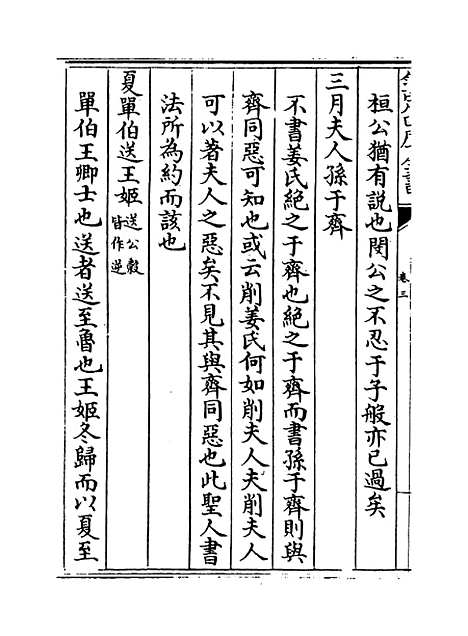 欽定四庫全書
卷三
桓公猶有説也閔公之不忍于子般亦已過矣
三月夫人孫于齊
不書姜氏絶之于齊也絶之于齊而書孫于齊則與
齊同惡可知也或云削姜氏何如削夫人夫削夫人
可以著夫人之惡矣不見其與齊同惡也此聖人書
法所為約而該也
夏單伯送王姬送公穀皆作逆
單伯王卿士也送者送至魯也王姬冬歸而以夏至